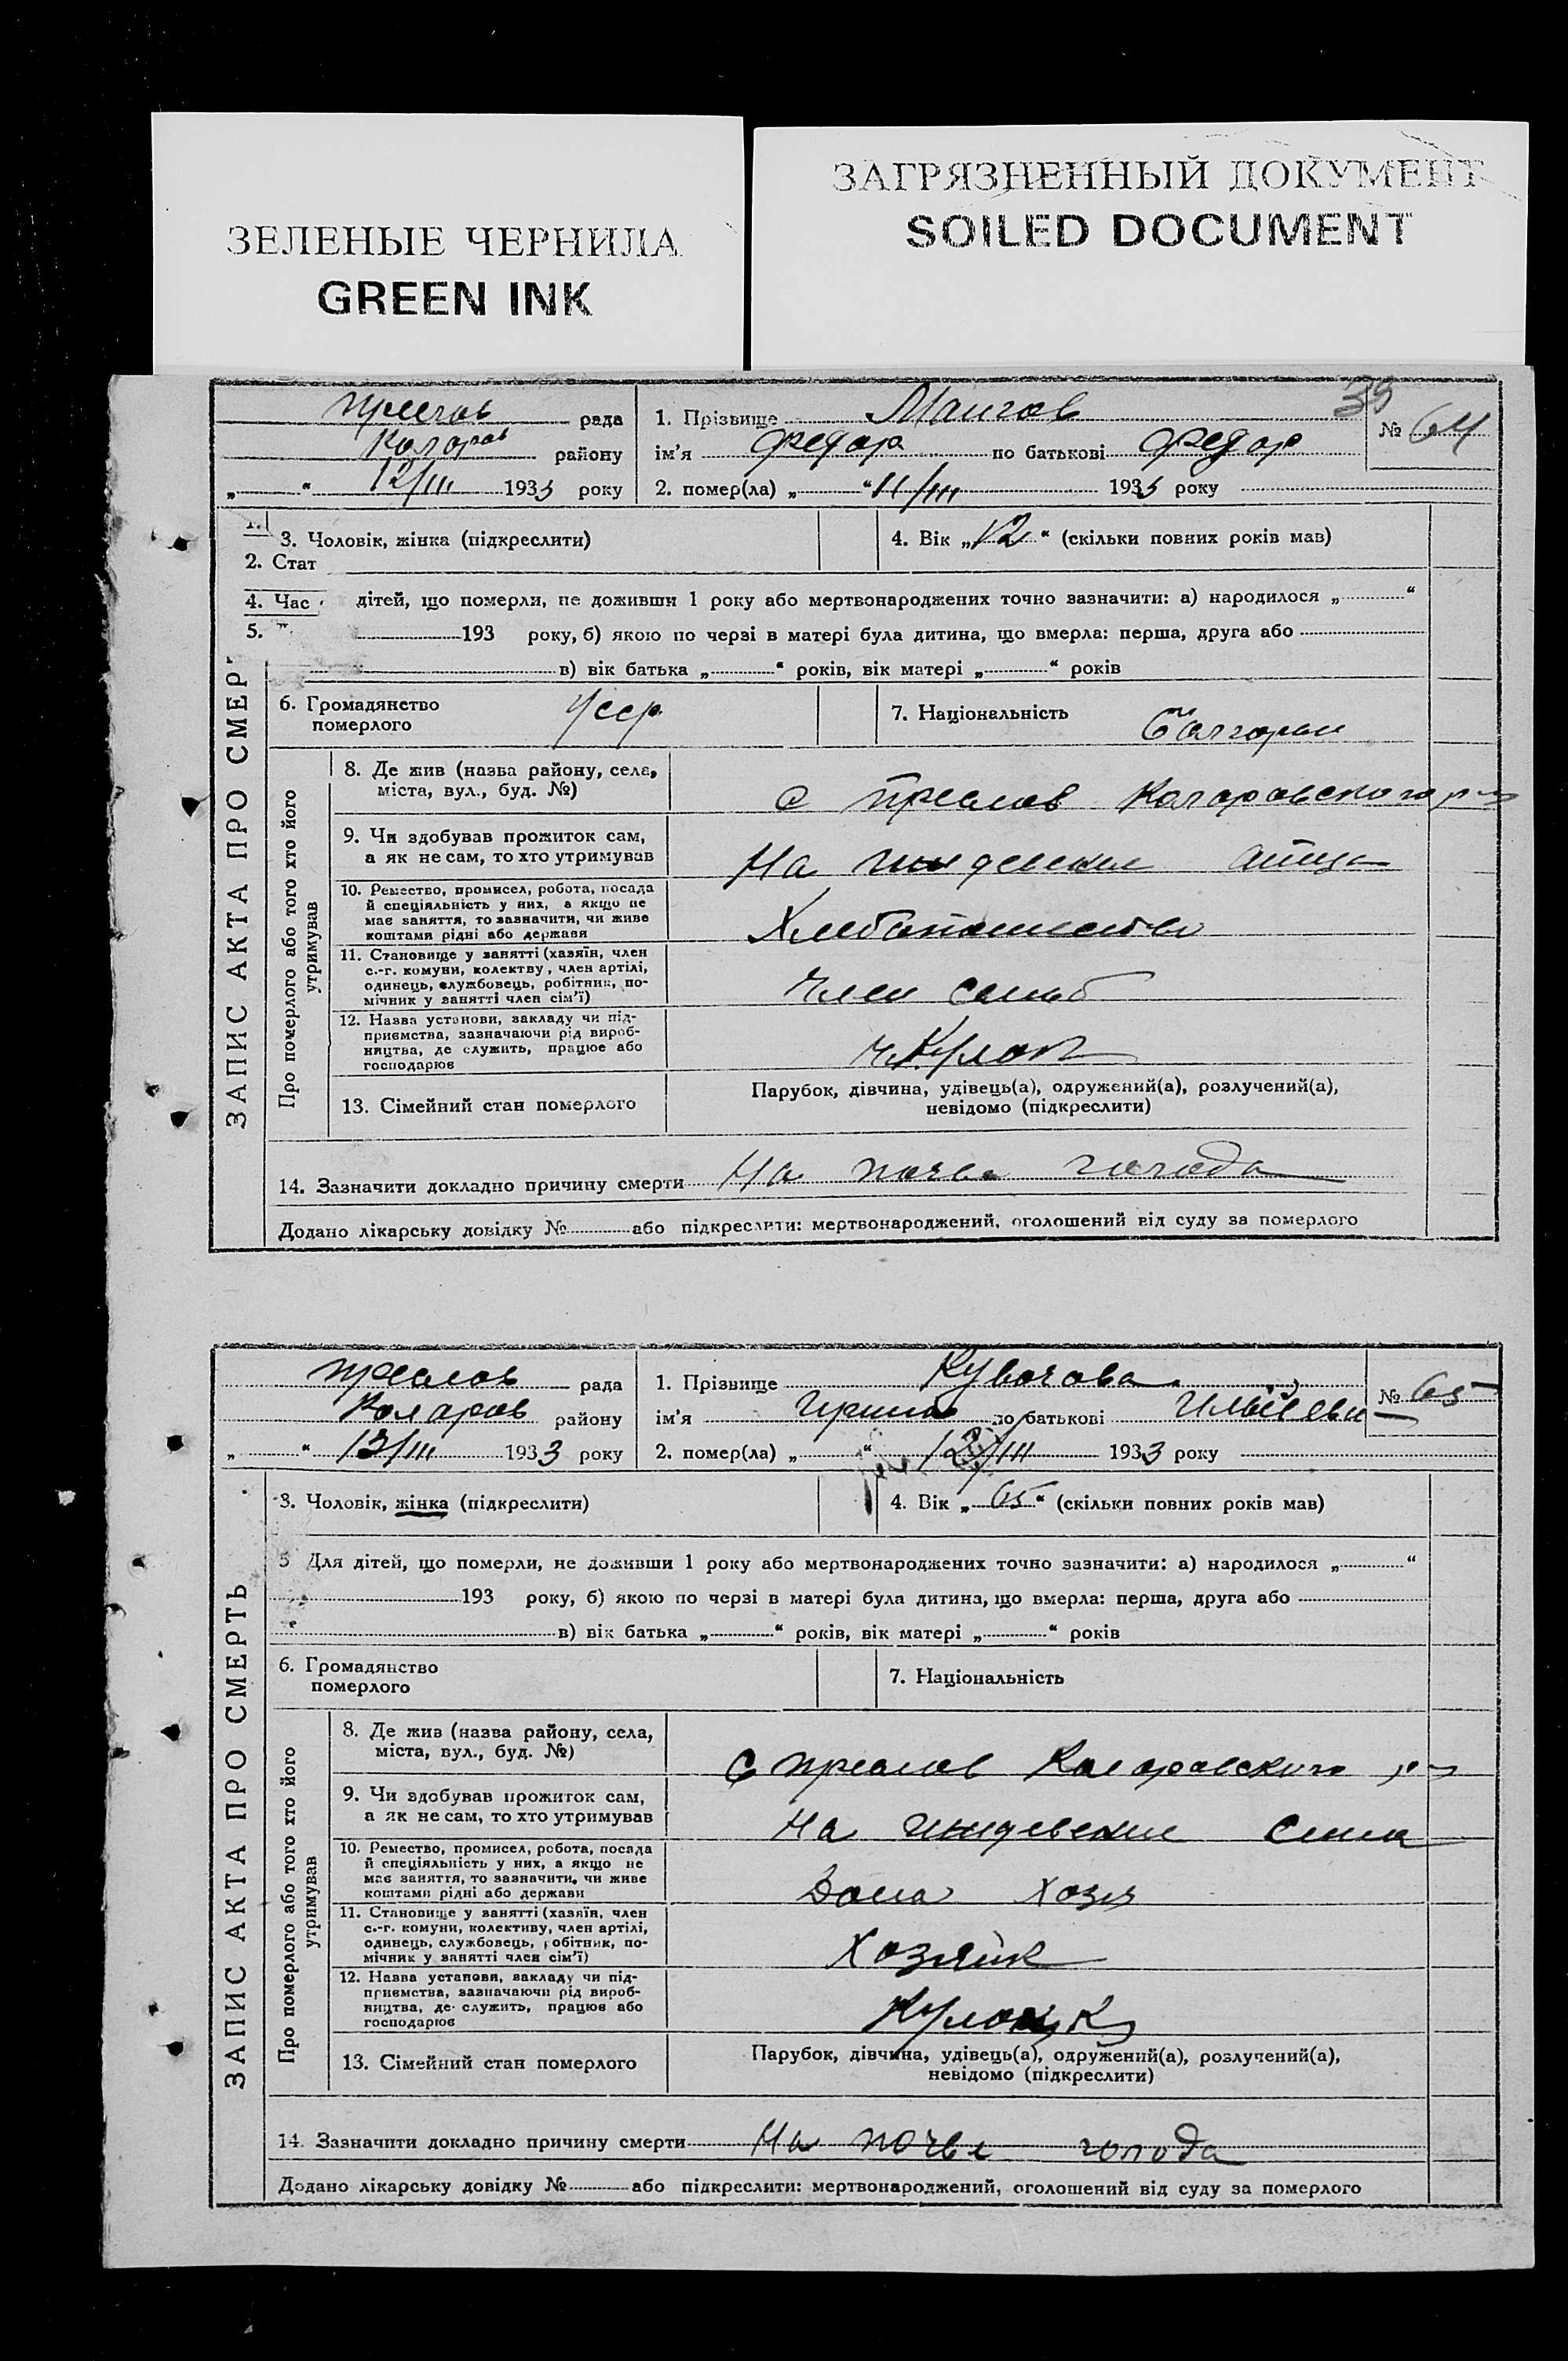 ЗЕЛЕНЫЕ ЧЕРНИЛА
GREEN INK
ЗАГРЯЗНЕННЫЙ ДОКУМЕНТ
SOILED DOCUMENT
39
рада
Коларов району
12/III 1933 року
1. Прізвище
№ 64
ім'я Федор по батькові Федор
2. помер(ла) „ “ 11/III 1933 року
1.
3. Чоловік, жінка (підкреслити)
2. Стат
4. Вік „12“ (скільки повних років мав)
4. Час
дітей, що померли, не доживши 1 року або мертвонароджених точно зазначити: а) народилося „ “
5.
193 року, б) якою по черзі в матері була дитина, що вмерла: перша, друга або
в) вік батька „ “ років, вік матері „ “ років
ЗАПИС АКТА ПРО СМЕР
6. Громадянство
померлого
Усср
7. Національність
Про померлого або того хто його
утримував
8. Де жив (назва району, села,
міста, вул., буд. №)
с Преслав Коларовского р
9. Чи здобував прожиток сам,
а як не сам, то хто утримував
На иждевении отца
10. Ремество, промисел, робота, посада
й спеціяльність у них, а якщо не
має заняття, то зазначити, чи живе
коштами рідні або держави
Хлебопашество
11. Становище у занятті (хазяїн, член
с.-г. комуни, колектву, член артілі,
одинець, службовець, робітник, по-
мічник у занятті член сім'ї)
Член
12. Назва установи, закладу чи під-
приємства, зазначаючи рід вироб-
ництва, де служить, працює або
господарює
13. Сімейний стан померлого
Парубок, дівчина, удівець(а), одружений(а), розлучений(а),
невідомо (підкреслити)
14. Зазначити докладно причину смерти На почве голода
Додано лікарську довідку № або підкреслити: мертвонароджений, оголошений від суду за померлого
Преслав рада
Коларов району
„ “ 13/III 1933 року
1. Прізвище
№ 65
ім'я по батькові
2. помер(ла) „ “ 12/III 1933 року
3. Чоловік, жінка (підкреслити)
4. Вік „65“ (скільки повних років мав)
5 Для дітей, що померли, не доживши 1 року або мертвонароджених точно зазначити: а) народилося „ “
193 року, б) якою по черзі в матері була дитина, що вмерла: перша, друга або
в) вік батька „ “ років, вік матері „ “ років
ЗАПИС АКТА ПРО СМЕРТЬ
6. Громадянство
померлого
7. Національність
Про померлого або того хто його
утримував
8. Де жив (назва району, села,
міста, вул., буд. №)
С Преслав Коларовского р
9. Чи здобував прожиток сам,
а як не сам, то хто утримував
На иждевении сына
10. Ремество, промисел, робота, посада
й спеціяльність у них, а якщо не
має заняття, то зазначити, чи живе
коштами рідні або держави
Дома хозя
11. Становище у занятті (хазяїн, член
с.-г. комуни, колективу, член артілі,
одинець, службовець, робітник, по-
мічник у занятті член сім'ї)
12. Назва установи, закладу чи під-
приємства, зазначаючи рід вироб-
ництва, де служить, працює або
господарює
13. Сімейний стан померлого
Парубок, дівчина, удівець(а), одружений(а), розлучений(а),
невідомо (підкреслити)
14. Зазначити докладно причину смерти На почве голода
Додано лікарську довідку № або підкреслити: мертвонароджений, оголошений від суду за померлого